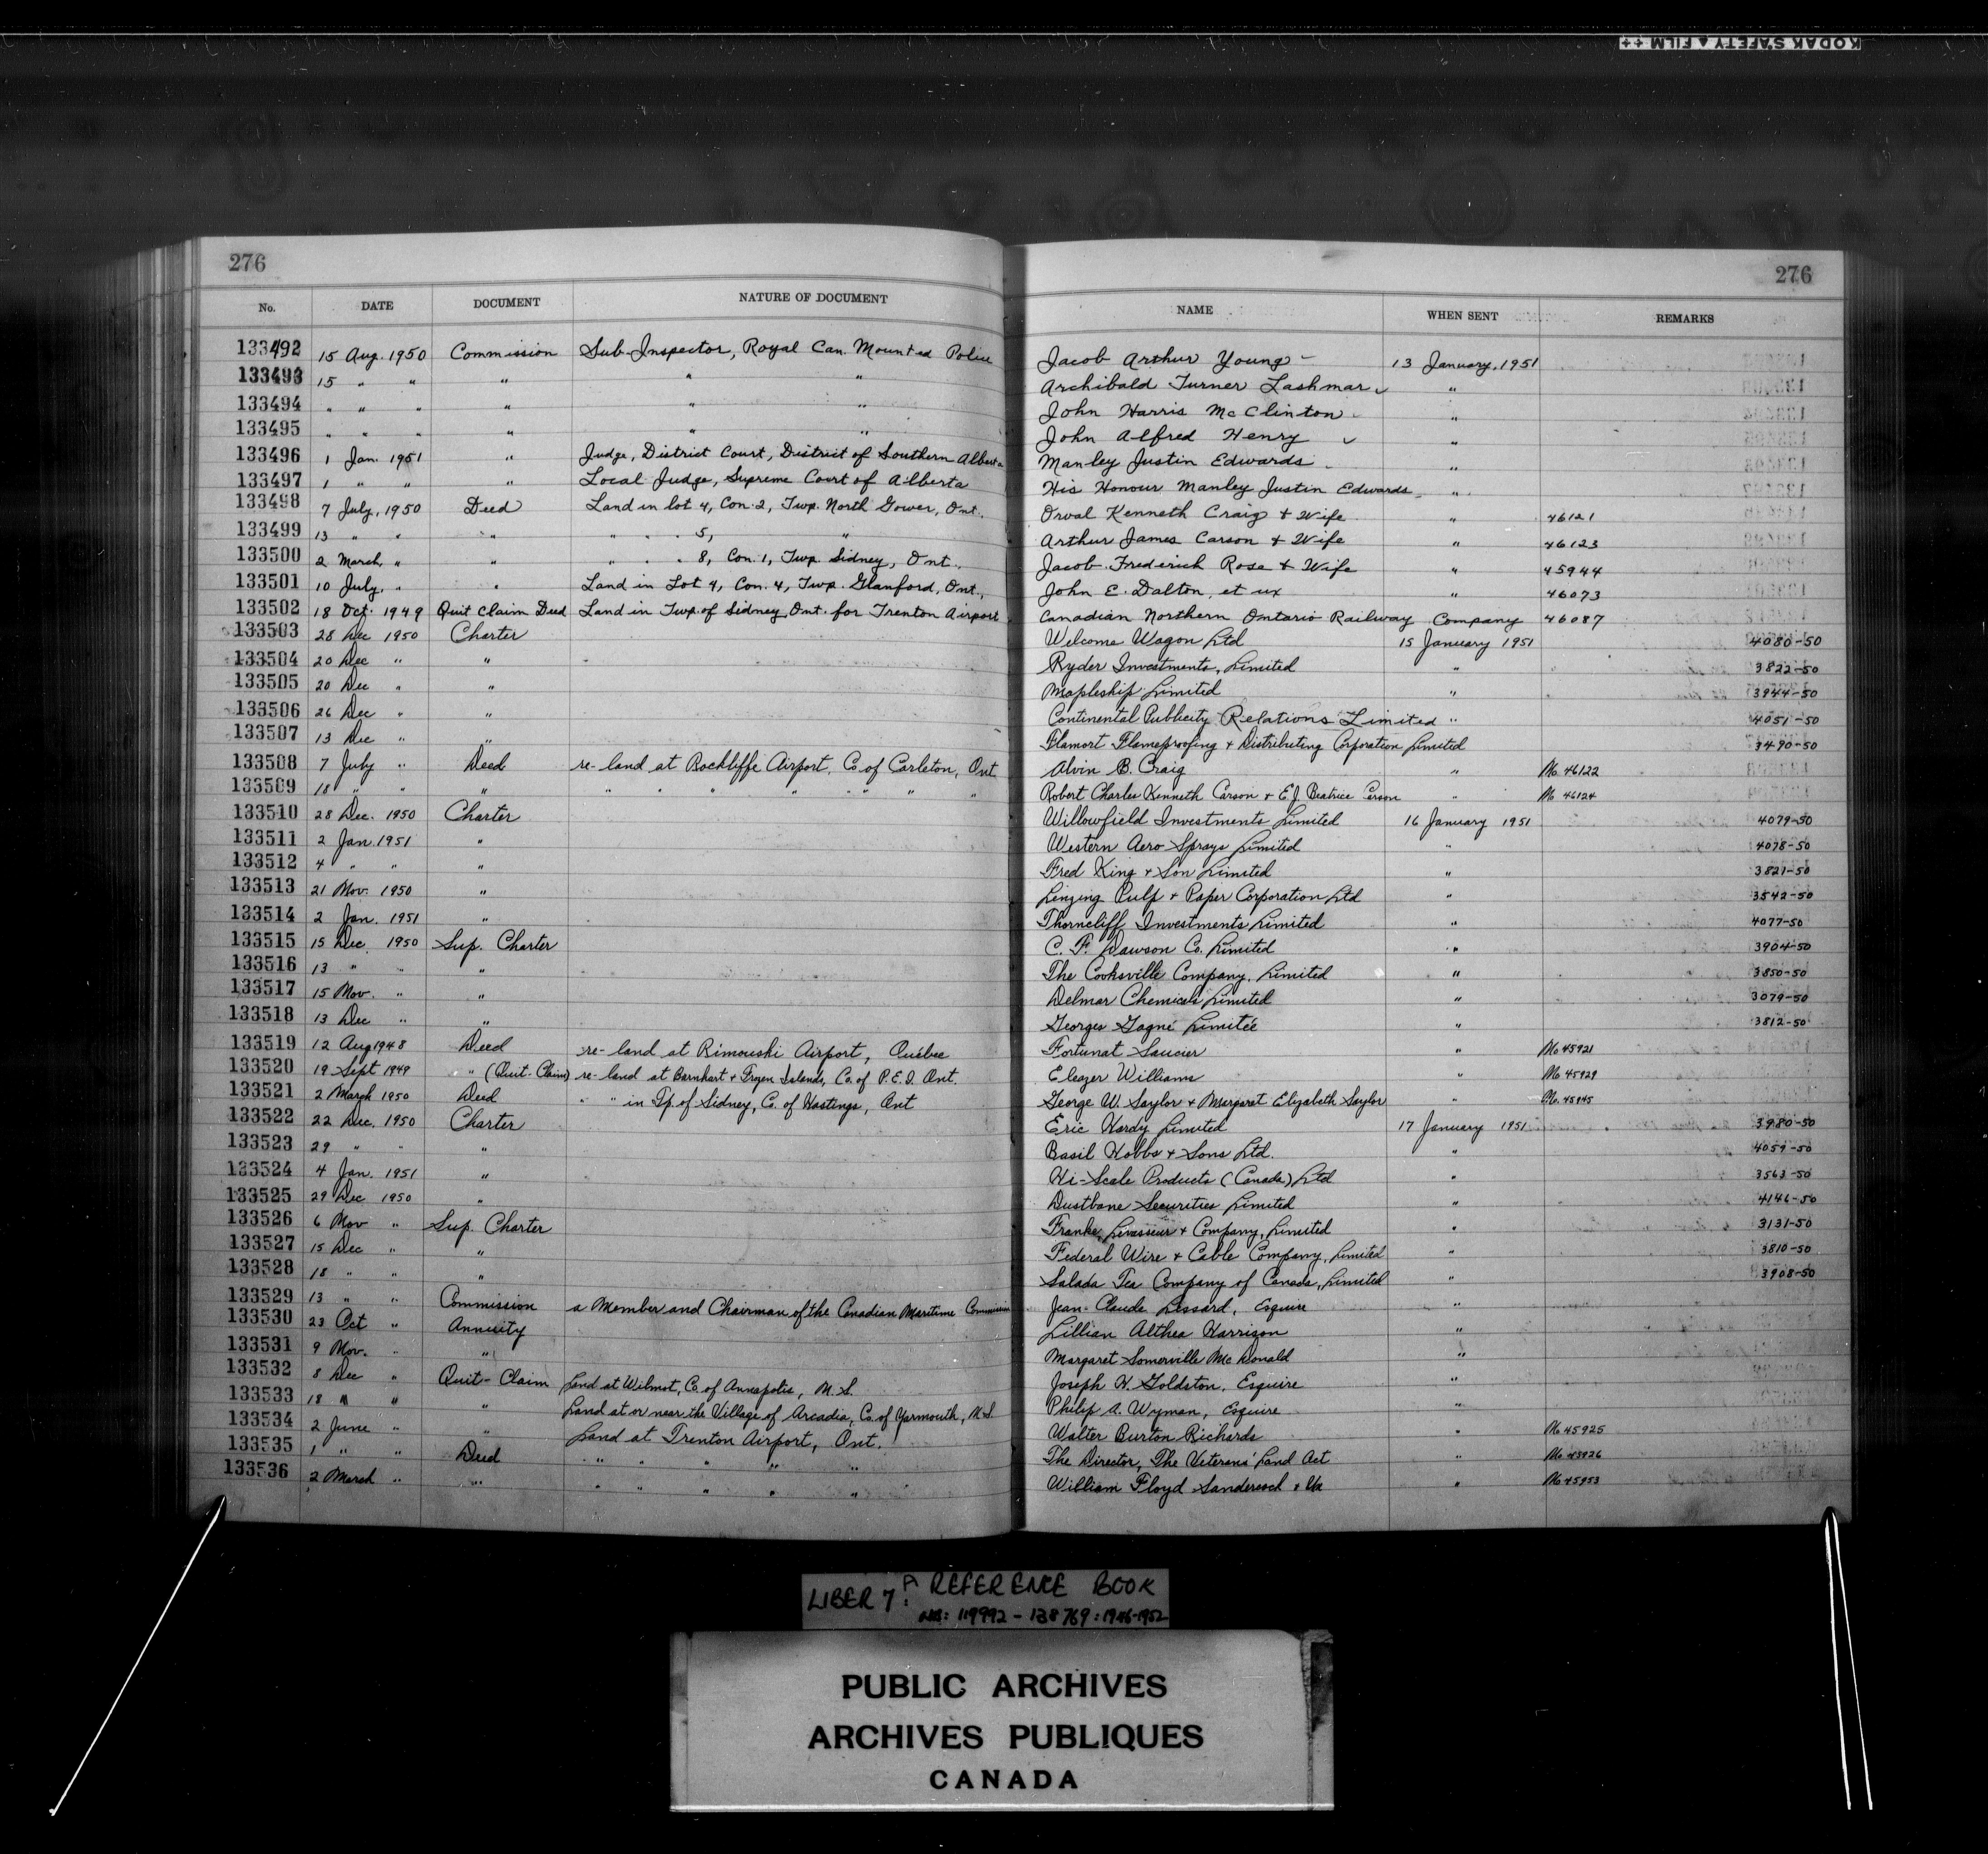 KODAK SAFETY FILM
276 276
No. DATE DOCUMENT NATURE OF DOCUMENT NAME WHEN SENT REMARKS
133492 15 Aug. 1950 Commission Sub-Inspector, Royal Can. Mounted Police Jacob Arthur Young 13 January, 1951
133493 15 " " " " " Archibald Turner Lashmar "
133494 " " " " " " John Harris McClinton "
133495 " " " " " " John Alfred Henry "
133496 1 Jan. 1951 " Judge, District Court, District of Southern Alberta Manley Justin Edwards "
133497 1 " " " Local Judge, Supreme Court of Alberta His Honour Manley Justin Edwards "
133498 7 July, 1950 Deed Land in lot 4, Con. 2, Twp. North Gower, Ont. Orval Kenneth Craig + Wife " 46121
133499 13 " " " " " " 5, " Arthur James Carson + Wife " 46123
133500 2 March, " " " " " 8, Con. 1, Twp. Sidney, Ont. Jacob Frederick Rose + Wife " 45944
133501 10 July, " " Land in Lot 4, Con. 4, Twp. Glanford, Ont., John E. Dalton, et ux " 46073
133502 18 Oct. 1949 Quit Claim Deed Land in Twp. of Sidney Ont. for Trenton Airport Canadian Northern Ontario Railway Company 46087
133503 28 Dec 1950 Charter Welcome Wagon Ltd 15 January 1951 4080-50
133504 20 Dec " " Ryder Investments, Limited " 3822-50
133505 20 Dec " " Mapleship Limited " 3944-50
133506 26 Dec " " Continental Publicity Relations Limited " 4051-50
133507 13 Dec " " Flamort Flameproofing + Distributing Corporation Limited 3490-50
133508 7 July " Deed re- land at Rockliffe Airport, Co. of Carleton, Ont Alvin B. Craig " No 46122
133509 18 " " " " " " " " " " " Robert Charles Kenneth Carson + E.J. Beatrice Carson " No 46124
133510 28 Dec. 1950 Charter Willowfield Investments Limited 16 January 1951 4079-50
133511 2 Jan. 1951 " Western Aero Sprays Limited " 4078-50
133512 4 " " " Fred King + Son Limited " 3821-50
133513 21 Nov. 1950 " Pulp + Paper Corporation Ltd " 3542-50
133514 2 Jan. 1951 " Thorncliff Investments Limited " 4077-50
133515 15 Dec 1950 Sup. Charter C. F. Dawson Co. Limited " 3904-50
133516 13 " " " The Cooksville Company, Limited " 3850-50
133517 15 Nov. " " Delmar Chemicals Limited " 3079-50
133518 13 Dec " " Georges Gagné Limitée " 3812-50
133519 12 Aug 1948 Deed re- land at Rimouski Airport, Québec Fortunat Saucier " No 45921
133520 19 Sept 1949 " (Quit-Claim) re- land at Barnhart + Islands, Co. of P.E.I. Ont. Eleazer Williams " No 45929
133521 2 March 1950 Deed " " in Tp. of Sidney, Co. of Hastings, Ont George W. Saylor + Margaret Elizabeth Saylor " No. 45945
133522 22 Dec. 1950 Charter Eric Hardy Limited 17 January 1951 3980-50
133523 29 " " " Basil Hobbs + Sons Ltd. " 4059-50
133524 4 Jan. 1951 " Hi-Scale Products (Canada) Ltd " 3563-50
133525 29 Dec 1950 " Dustbane Securities Limited " 4146-50
133526 6 Nov " Sup. Charter Franke, Levasseur + Company, Limited " 3131-50
133527 15 Dec " " Federal Wire + Cable Company, Limited " 3810-50
133528 18 " " " Salada Tea Company of Canada, Limited " 3908-50
133529 13 " " Commission a Member and Chairman of the Canadian Maritime Commission Jean-Claude Lessard, Esquire "
133530 23 Oct " Annuity Lillian Althea Harrison "
133531 9 Nov. " " Margaret Somerville McDonald "
133532 8 Dec " Quit-Claim Land at Wilmot, Co. of Annapolis, N.S. Joseph W. Goldston, Esquire "
133533 18 " " " Land at or near the Village of Arcadia, Co. of Yarmouth, N.S. Philip A. Wyman, Esquire "
133534 2 June " " Land at Trenton Airport, Ont. Walter Burton Richards " No 45925
133535 1 " " Deed " " " " " The Director, The Veterans' Land Act " No 45926
133536 2 March " " " " " " " William Floyd & Ux " No 45953
LIBER 7: A REFERENCE BOOK
NOS: 119992 - 138769: 1946-1952
PUBLIC ARCHIVES
ARCHIVES PUBLIQUES
CANADA